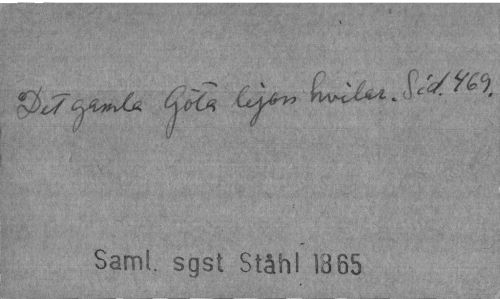 Det gamla Göta lejon hvilar. Sid. 469.
Saml. sgst Ståhl 1865